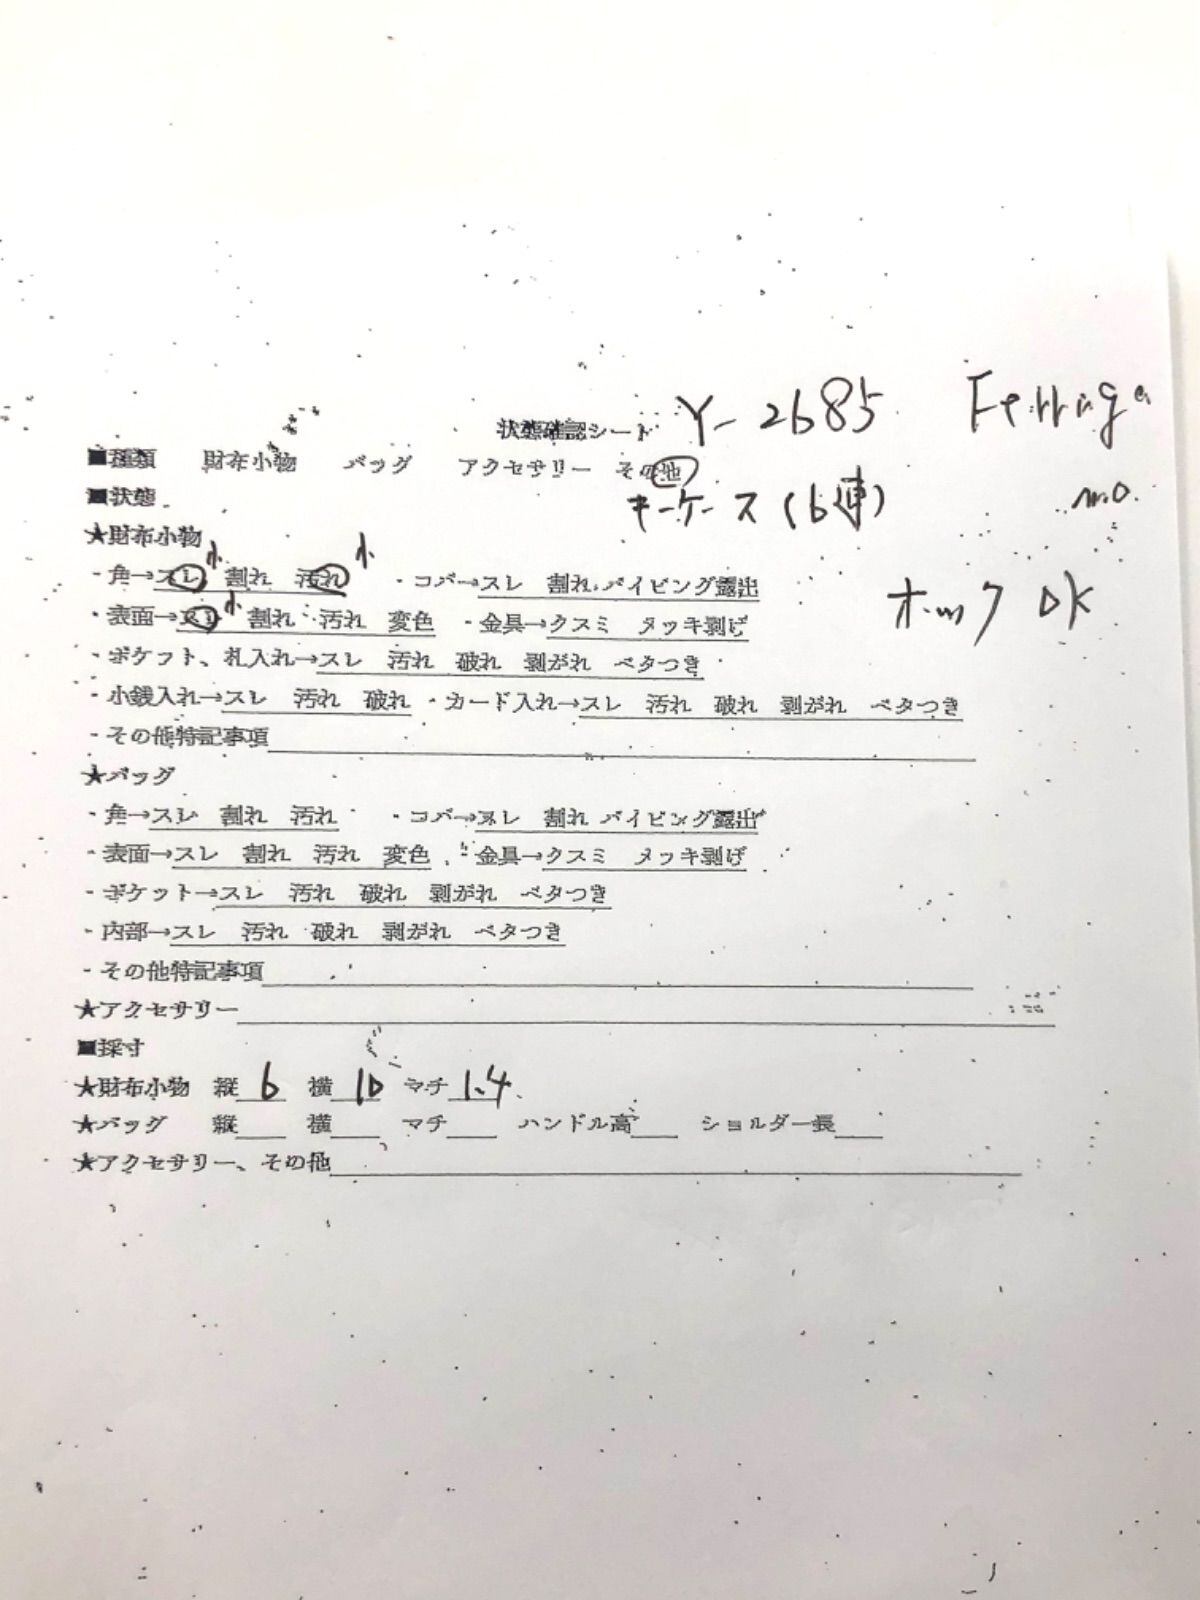 状態確認シート Y-2685
■種類 財布小物 バッグ アクセサリー その他
キーケース(6連)
■状態
★財布小物
・角→スレ小 割れ 汚れ小 ・コバ→スレ 割れ パイピング露出
ホック OK
・表面→スレ小 割れ 汚れ 変色 ・金具→クスミ メッキ剥げ
・ポケット、札入れ→スレ 汚れ 破れ 剥がれ ベタつき
・小銭入れ→スレ 汚れ 破れ ・カード入れ→スレ 汚れ 破れ 剥がれ ベタつき
・その他特記事項
★バッグ
・角→スレ 割れ 汚れ ・コバ→スレ 割れ パイピング露出
・表面→スレ 割れ 汚れ 変色 ・金具→クスミ メッキ剥げ
・ポケット→スレ 汚れ 破れ 剥がれ ベタつき
・内部→スレ 汚れ 破れ 剥がれ ベタつき
・その他特記事項
★アクセサリー
■採寸
★財布小物 縦 6 横 10 マチ 1.4
★バッグ 縦 横 マチ ハンドル高 ショルダー長
★アクセサリー、その他